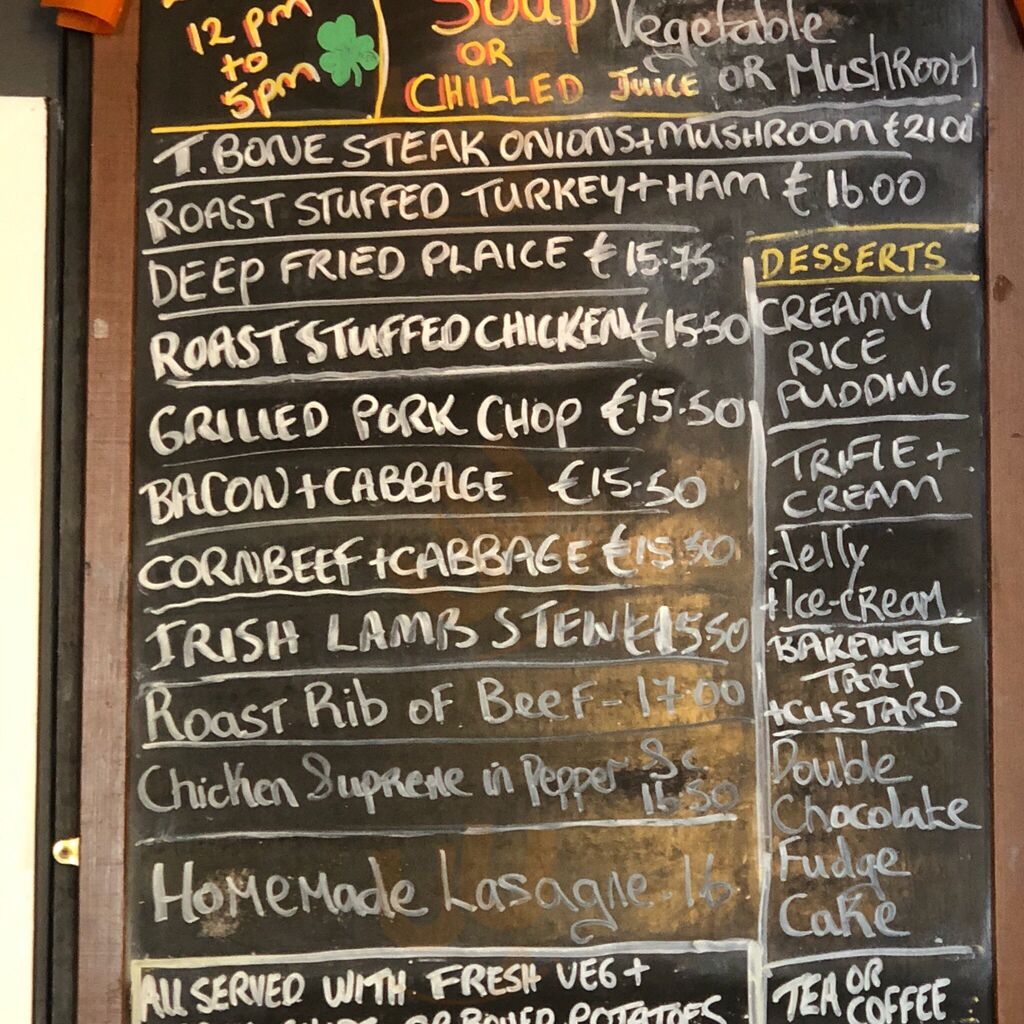 12 pm
to
5pm
Soup Vegetable
OR
CHILLED Juice OR MushRooM
T.BONE STEAK ONIONS+MUSHROOM €21.00
ROAST STUFFED TURKEY+HAM €16.00
DEEP FRIED PLAICE €15.75
ROAST STUFFED CHICKEN €15.50
GRILLED PORK CHOP €15.50
BACON+CABBAGE €15.50
CORNBEEF+CABBAGE €15.50
IRISH LAMB STEW €15.50
Roast Rib of Beef-17.00
Chicken Supreme in Pepper Sc
16.50
Homemade Lasagne.16
ALL SERVED WITH FRESH VEG+
OR BOILED POTATOES
DESSERTS
CREAMY
RICE
PUDDING
TRIFLE+
CREAM
Jelly
+Ice-Cream
BAKEWELL
TART
+CUSTARD
Double
Chocolate
Fudge
Cake
TEA OR
COFFEE